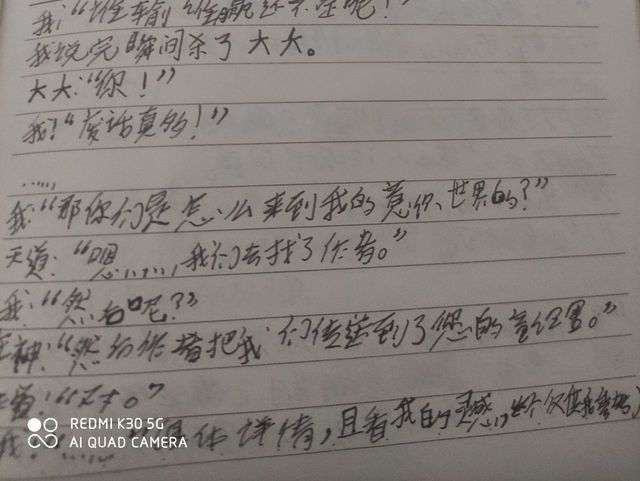 我:“谁输谁赢还不一定呢!
我说完瞬间杀了大大。
大大:“你!”
我:“废话真多!”
……
我:“那你们是怎么来到我的意识世界的?”
天道:“嗯……,我们去找了作者。”
我:“然后呢?”
神:“然后作者把我们传送到了您的
:“
我:“……”具体详情,且看我的灵感,
REDMI K30 5G
AI QUAD CAMERA